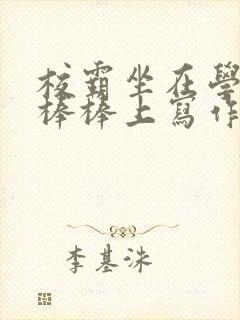 校霸坐在學
棒棒上寫作
李基洙